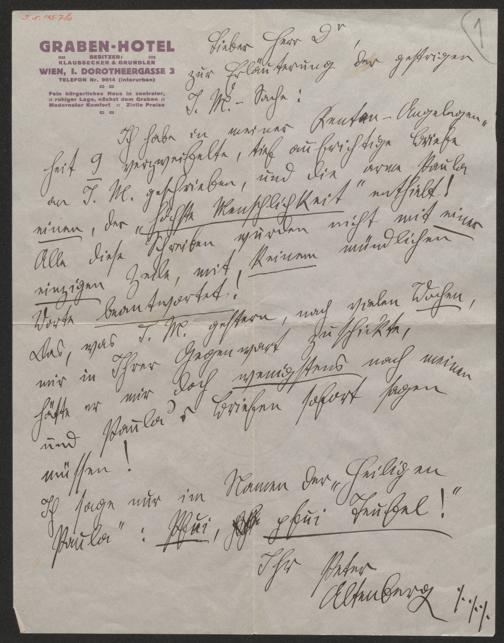 GRABEN-HOTEL
BESITZER:
KLAUSSECKER & GRUNDLER
WIEN, I. DOROTHEERGASSE 3
TELEFON Nr. 9814 (interurban)
Fein bürgerliches Haus in zentraler,
ruhiger Lage, nächst dem Graben
Modernster Komfort :: Zivile Preise
1
Lieber Herr Dr,
zur Erläuterung der gestrigen
T. M. - Sache:
Ich habe in meiner Renten-Angelegen-
heit 9 verzweifelte, tief aufrichtige Briefe
an T. M. geschrieben, und die arme Paula
einen, der „höchste Menschlichkeit" enthielt!
Alle diese Schreiben wurden nicht mit einer
einzigen Zeile, mit keinem mündlichen
Worte beantwortet!
Das, was T. M. gestern, nach vielen Wochen,
mir in Ihrer Gegenwart zuschickte,
hätte er mir doch wenigstens nach meinen
und Paula's Briefen sofort sagen
müssen!
Ich sage nur im Namen der „heiligen
Paula": Pfui, pfui Teufel!"
Ihr Peter
Altenberg